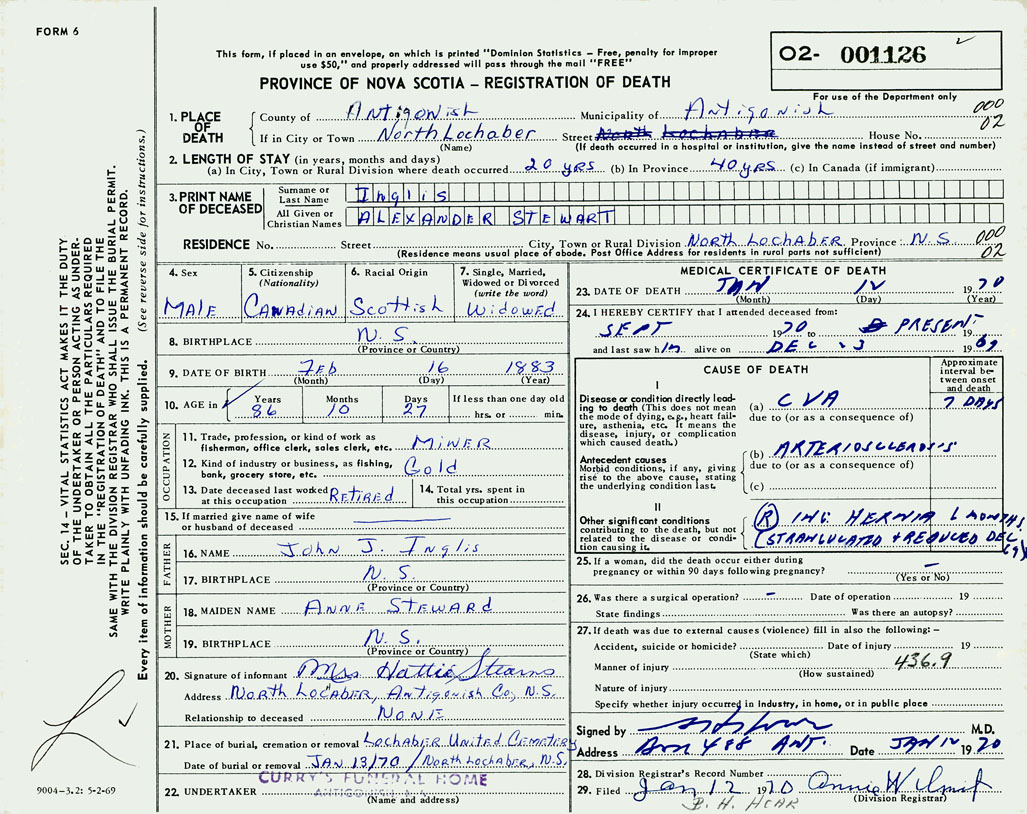 FORM 6
02- 001126
This form, if placed in an envelope, on which is printed "Dominion Statistics – Free, penalty for improper
use $50," and properly addressed will pass through the mail "FREE"
PROVINCE OF NOVA SCOTIA – REGISTRATION OF DEATH
For use of the Department only
1. PLACE OF DEATH
County of Antigonish Municipality of Antigonish 000
If in City or Town North Lochaber Street North Lochaber House No. 02
(Name) (If death occurred in a hospital or institution, give the name instead of street and number)
2. LENGTH OF STAY (in years, months and days)
(a) In City, Town or Rural Division where death occurred 20 yrs (b) In Province 40 yrs (c) In Canada (if immigrant)
3. PRINT NAME OF DECEASED
Surname or Last Name Inglis
All Given or Christian Names ALEXANDER STEWART
RESIDENCE No. Street City, Town or Rural Division North Lochaber Province N S 000
(Residence means usual place of abode. Post Office Address for residents in rural parts not sufficient) 02
4. Sex MALE
5. Citizenship (Nationality) Canadian
6. Racial Origin Scottish
7. Single, Married, Widowed or Divorced (write the word) Widowed
8. BIRTHPLACE N. S.
(Province or Country)
9. DATE OF BIRTH Feb 16 1883
(Month) (Day) (Year)
10. AGE in Years 86 Months 10 Days 27 If less than one day old
hrs. or min.
OCCUPATION
11. Trade, profession, or kind of work as
fisherman, office clerk, sales clerk, etc. MINER
12. Kind of industry or business, as fishing,
bank, grocery store, etc. Gold
13. Date deceased last worked
at this occupation Retired
14. Total yrs. spent in
this occupation
15. If married give name of wife
or husband of deceased
FATHER
16. NAME John J. Inglis
17. BIRTHPLACE N. S.
(Province or Country)
MOTHER
18. MAIDEN NAME ANNE STEWARD
19. BIRTHPLACE N. S.
(Province or Country)
20. Signature of informant Mrs Hattie Stearns
Address North Lochaber, Antigonish Co, N.S.
Relationship to deceased NONE
21. Place of burial, cremation or removal Lochaber United Cemetery
Date of burial or removal JAN 13/70 / North Lochaber, N.S.
CURRY'S FUNERAL HOME
22. UNDERTAKER ANTIGONISH N. S.
(Name and address)
MEDICAL CERTIFICATE OF DEATH
23. DATE OF DEATH JAN 12 1970
(Month) (Day) (Year)
24. I HEREBY CERTIFY that I attended deceased from:
SEPT 1970 to PRESENT 19
and last saw him alive on DEC 23 1969
CAUSE OF DEATH
Approximate interval between onset and death
I
Disease or condition directly leading to death (This does not mean the mode of dying, e.g., heart failure, asthenia, etc. It means the disease, injury, or complication which caused death.)
(a) CVA 7 DAYS
due to (or as a consequence of)
Antecedent causes
Morbid conditions, if any, giving rise to the above cause, stating the underlying condition last.
(b) ARTERIOSCLEROSIS
due to (or as a consequence of)
(c)
II
Other significant conditions
contributing to the death, but not related to the disease or condition causing it.
(R) ING HERNIA 6 MONTHS
(STRANGULATED + REDUCED DEC 69)
25. If a woman, did the death occur either during
pregnancy or within 90 days following pregnancy? –
(Yes or No)
26. Was there a surgical operation? – Date of operation 19
State findings Was there an autopsy?
27. If death was due to external causes (violence) fill in also the following: –
Accident, suicide or homicide? Date of injury 19
(State which)
Manner of injury 436.9
(How sustained)
Nature of injury
Specify whether injury occurred in Industry, in home, or in public place
Signed by M.D.
Address Box 488 ANT. Date JAN 12 1970
28. Division Registrar's Record Number
29. Filed Jan 12 1970 Annie
(Division Registrar)
SEC. 14 – VITAL STATISTICS ACT MAKES IT THE DUTY
OF THE UNDERTAKER OR PERSON ACTING AS UNDER-
TAKER TO OBTAIN ALL THE PARTICULARS REQUIRED
IN THE "REGISTRATION OF DEATH" AND TO FILE THE
SAME WITH THE DIVISION REGISTRAR WHO SHALL ISSUE THE BURIAL PERMIT.
WRITE PLAINLY WITH UNFADING INK. THIS IS A PERMANENT RECORD.
Every item of information should be carefully supplied. (See reverse side for instructions.)
9004-3.2: 5-2-69